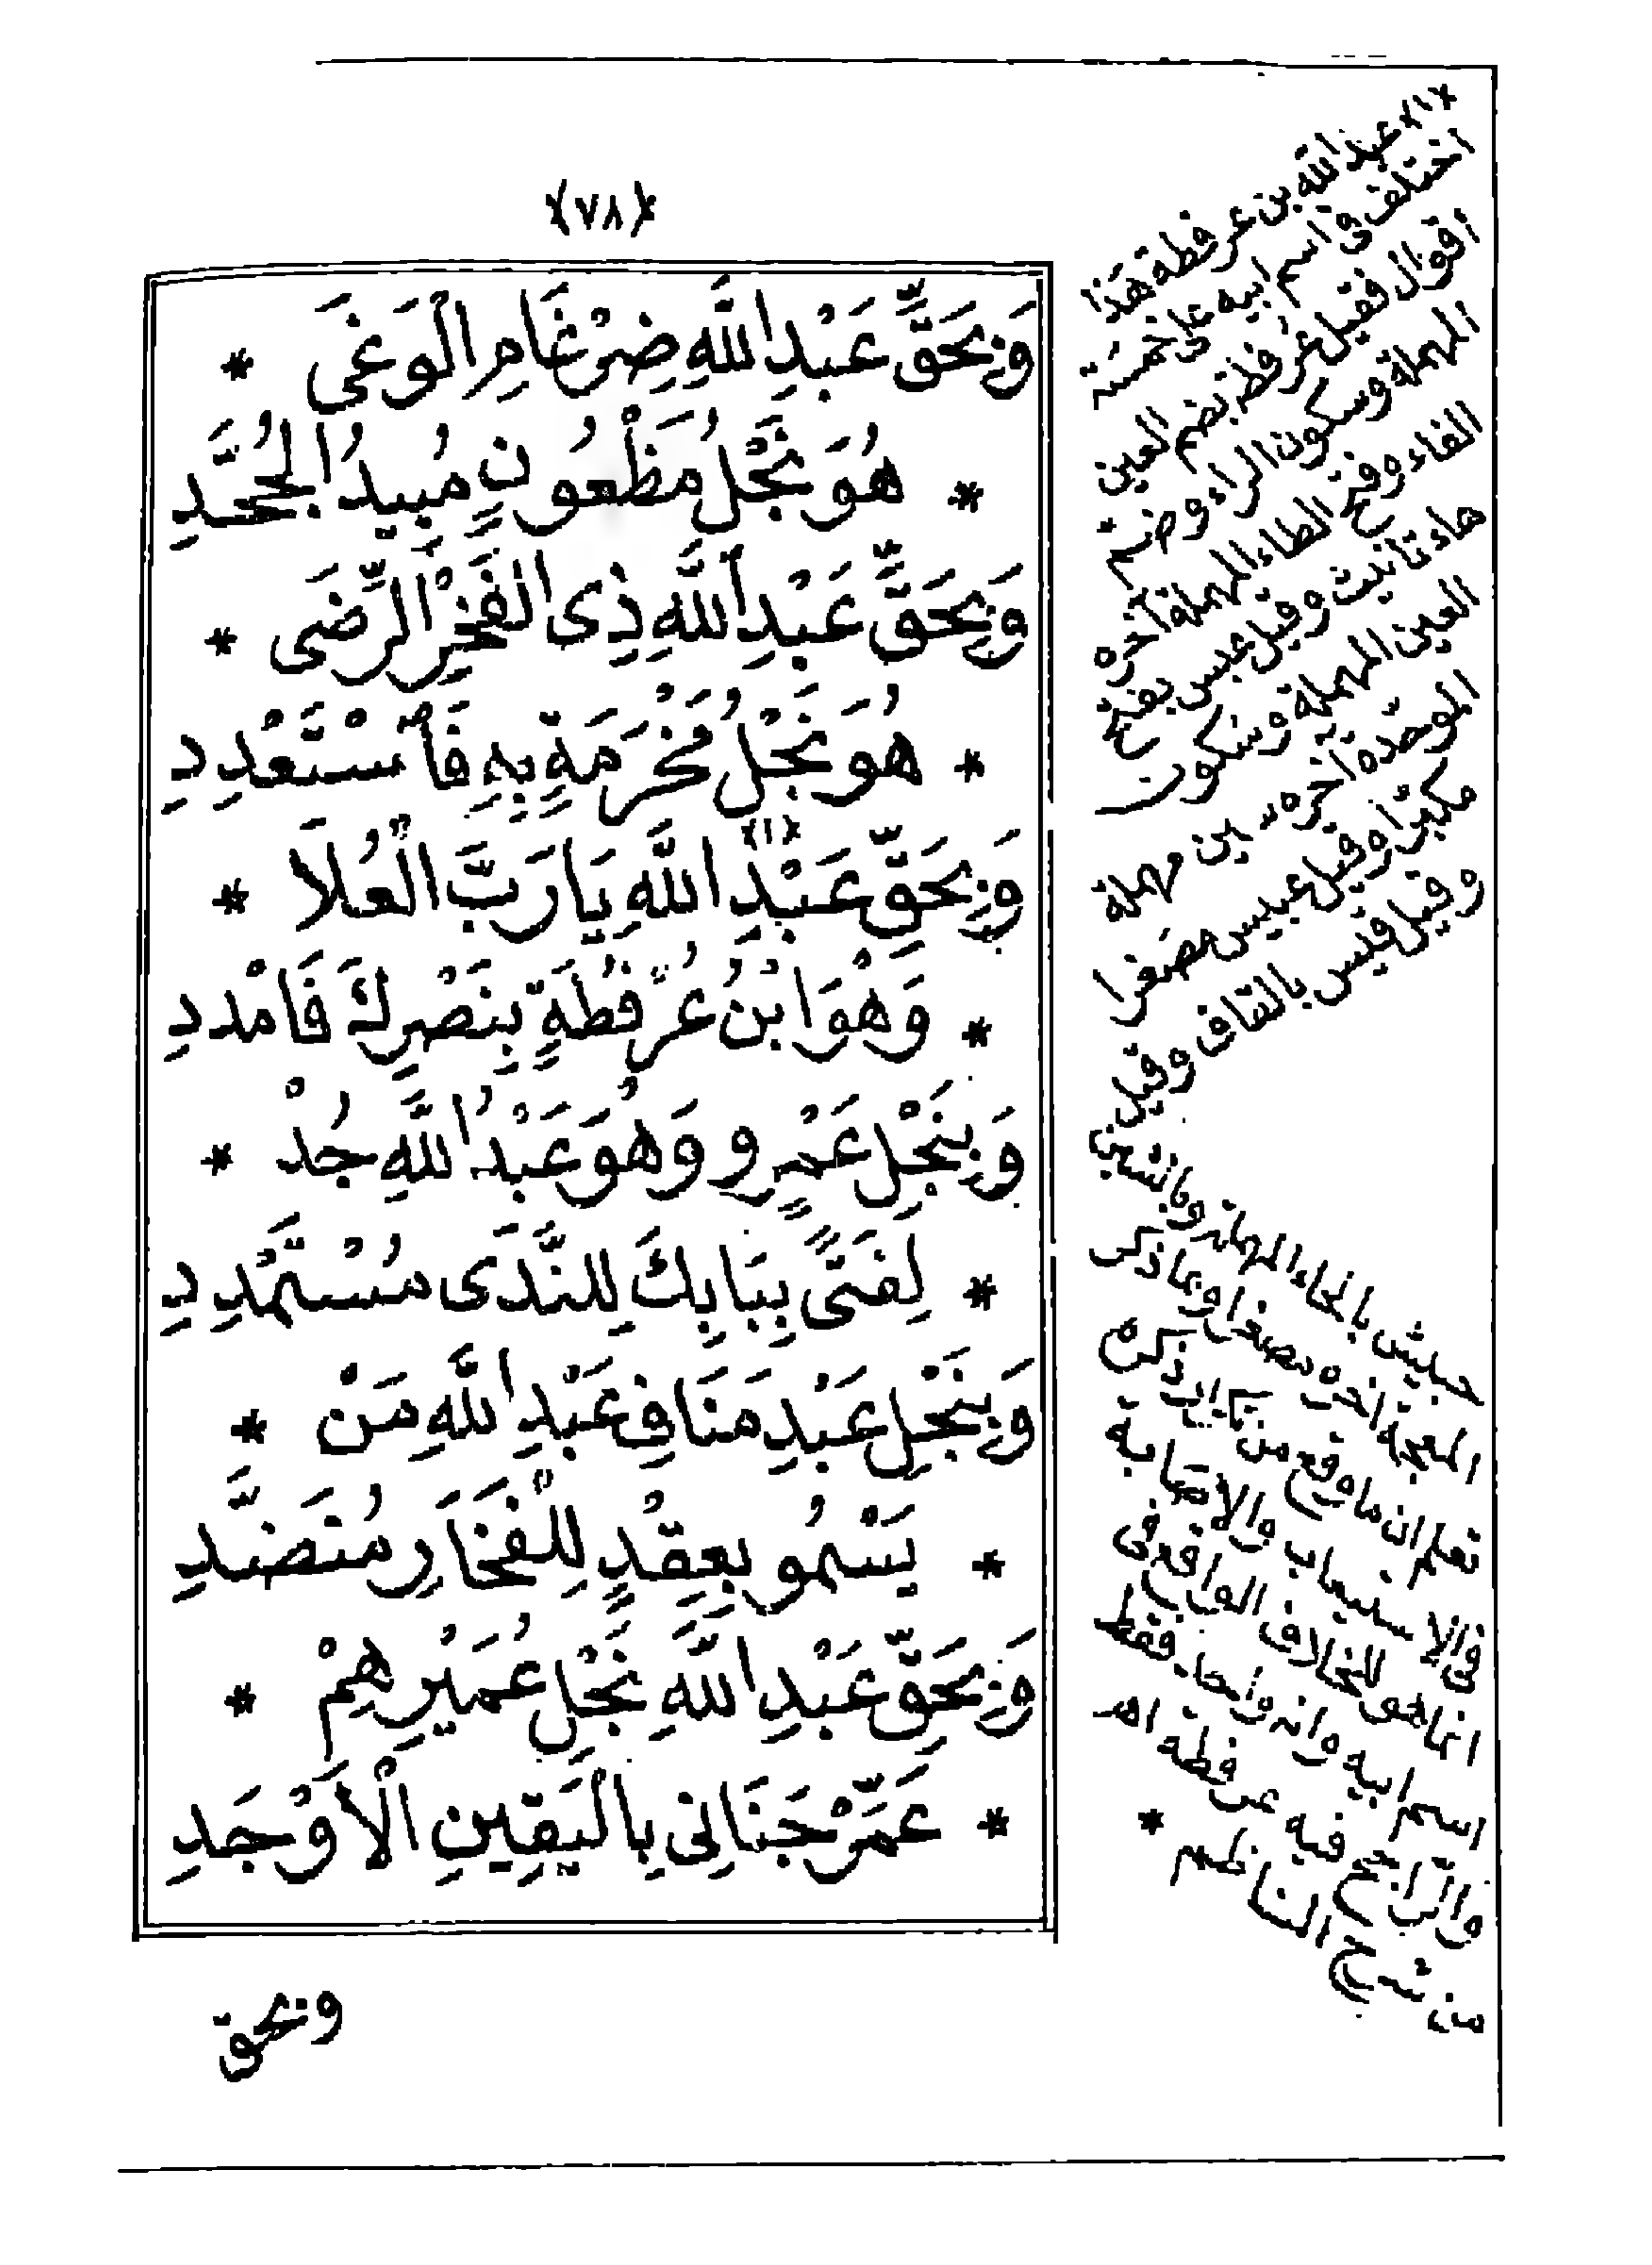 ﴿٧٨﴾
وَبِحَقِّ عَبْدِ اللَّهِ ضِرْغَامِ الْوَغَى *
* هُوَ نَجْلُ مَظْعُونٍ مُبِيدُ الْجُحَّدِ
وَبِحَقِّ عَبْدِ اللَّهِ ذِى الْفَخْرِ الرِّضَى *
* هُوَ نَجْلُ مَخْرَمَةٍ بِهِ فَأَسْتَعْدِدِ
وَبِحَقِّ عَبْدِ اللَّهِ يَا رَبَّ الْعُلَا * (١)
* وَهْوَ ابْنُ عُرْفُطَةٍ بِنَصْرِكَ فَامْدُدِ
وَبِنَجْلِ عَمْرٍو وَهُوَ عَبْدُ اللَّهِ جُدْ *
* لِفَتًى بِبَابِكَ لِلنَّدَى مُسْتَمْدِدِ
وَبِنَجْلِ عَبْدِ مَنَافٍ عَبْدِ اللَّهِ مَنْ *
* يَسْمُو بِعِقْدٍ لِلْفَخَارِ مُنَضَّدِ
وَبِحَقِّ عَبْدِ اللَّهِ نَجْلِ عُمَيْرِهِمْ *
* عَمِّرْ جَنَانِى بِالْيَقِينِ الْأَوْجَدِ
وبحق
(١) عبد الله بن عرفطة هذا
اختلف فى اسم ابيه على خمسة
اقوال فقيل عرفطة بضم العين
المهملة وسكون الراء وضم
الفاء وفتح الطاء المهملة اخره
هاء تانيث وقيل عبس بفتح
العين المهملة وسكون
الموحدة اخره سين مهملة
مكبرا وقيل عبيس مصغرا
وقيل قيس بالقاف وقيل
حبيش بالحاء المهملة وبالشين
المعجمة اخره مصغرا وبما ذكر
تعلم ان ما وقع من
فى الاستيعاب والاصابة
انما هو للخلاف الواقع فى
اسم ابيه وانه واحد فقط
والراجح فيه عرفطة اهـ
من شرح الناظم *